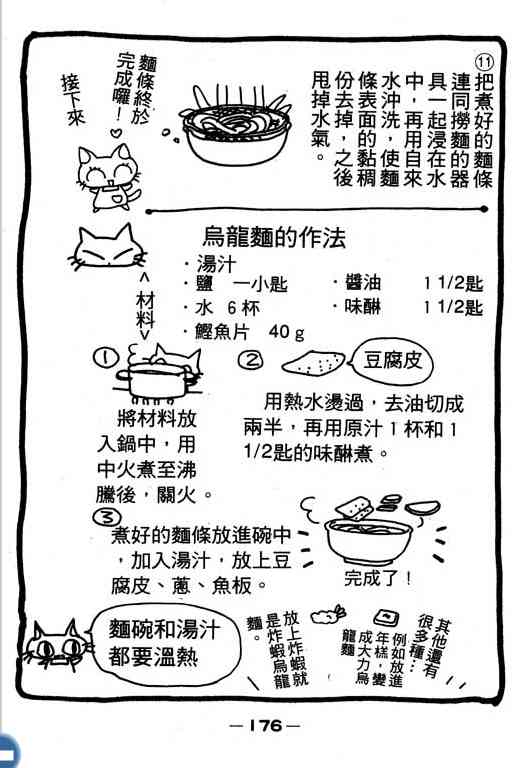 ⑪把煮好的麵條
連同撈麵的器
具一起浸在水
中，再用自來
水沖洗，使麵
條表面的黏稠
份去掉，之後
甩掉水氣。
麵條終於
完成囉！
接下來
烏龍麵的作法
<材料>
·湯汁
·鹽 一小匙
·水 6杯
·鰹魚片 40g
·醬油 1 1/2匙
·味醂 1 1/2匙
①
將材料放
入鍋中，用
中火煮至沸
騰後，關火。
②
豆腐皮
用熱水燙過，去油切成
兩半，再用原汁1杯和1
1/2匙的味醂煮。
③
煮好的麵條放進碗中
，加入湯汁，放上豆
腐皮、蔥、魚板。
完成了！
麵碗和湯汁
都要溫熱
其他還有
很多種…
例如放進
年糕，變
成大力烏
龍麵
放上炸蝦就
是炸蝦烏龍
麵。
—176—